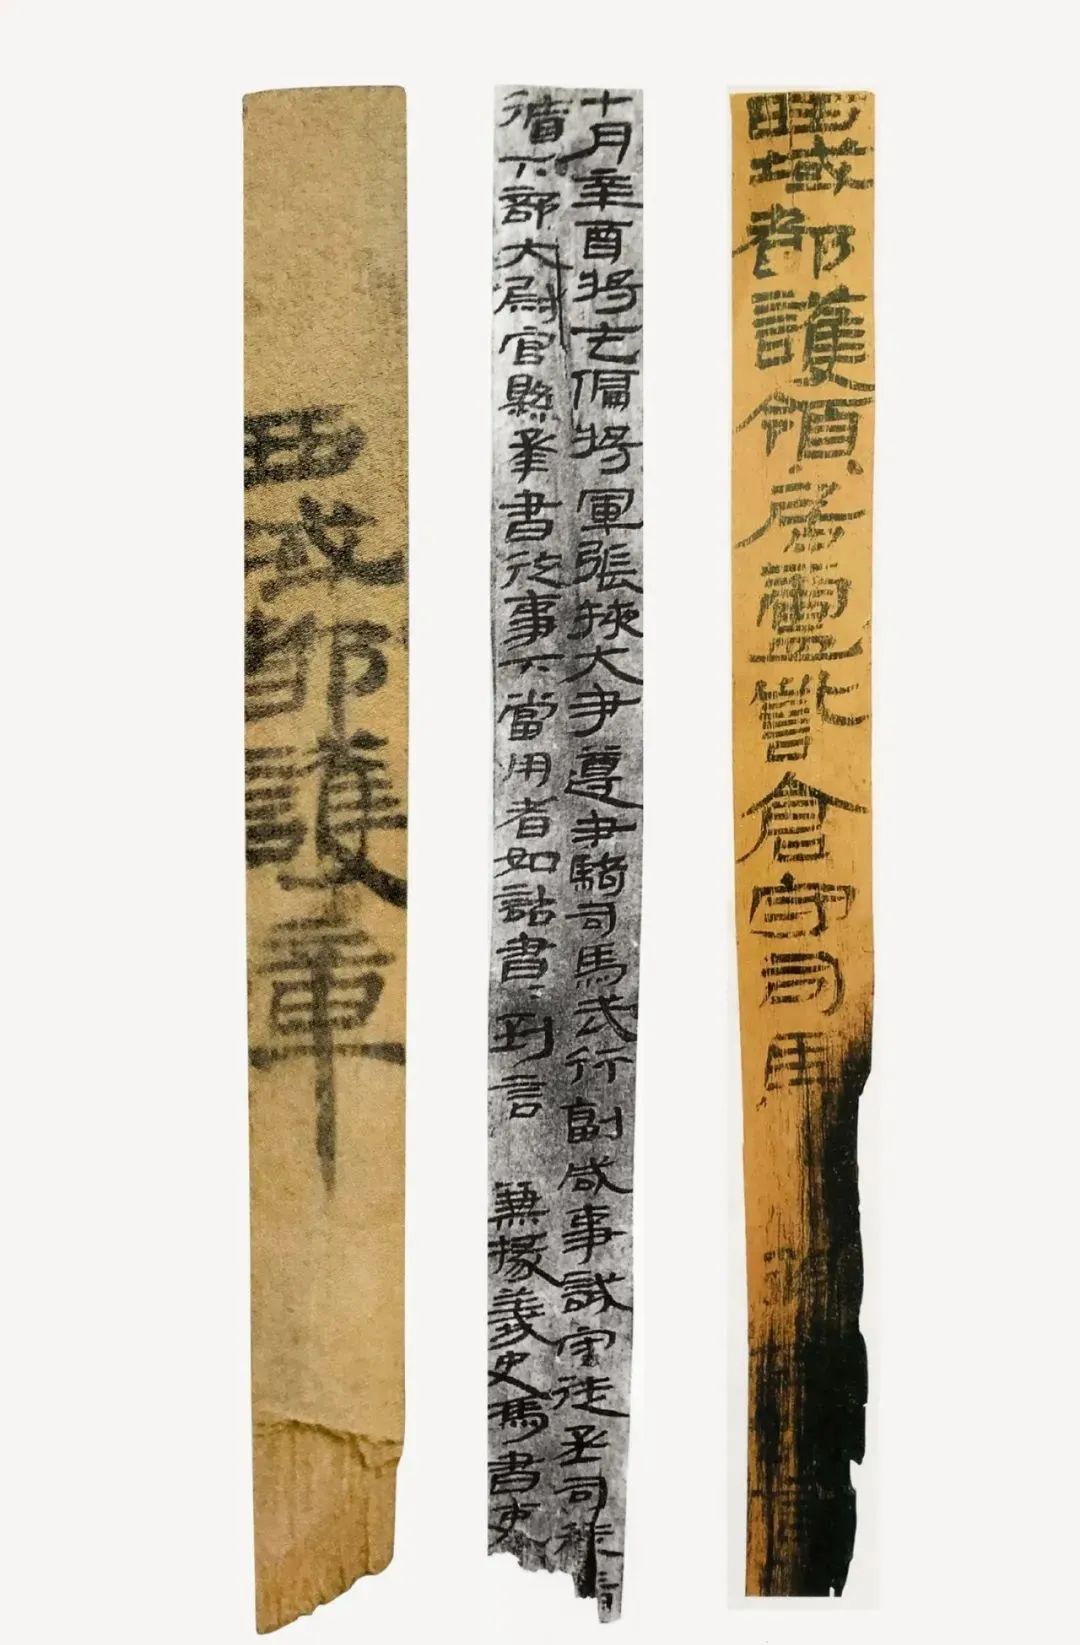 西域都護章
十月辛酉將屯偏將軍張掖大尹遵尹騎司馬武行副咸事試守徒丞司徒
循下部大尉官縣承書從事下當用者如詔書=到言 兼掾義史馮書吏
西域都護領居盧訾倉守司馬